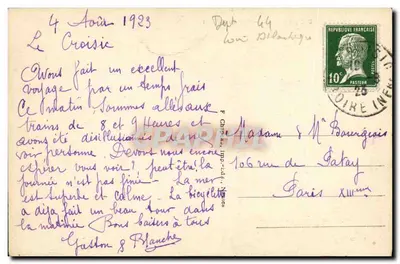 4 Août 1923
Dept 44
Le Croisic
Nous fait un excellent
voyage par un temps frais
Ce matin sommes allés aux
trains de 8 et 9 Heures et
avons été désillusionnés
voir personne. Devons nous encore
espérer vous voir? peut être, la
journée n'est pas finie. La mer
est superbe et calme. La bicyclette
a déjà fait un beau tour dans
la matinée Bons baisers à tous
Gaston & Blanche
Madame & Mr Bourgeois
106 rue de Patay
Paris XIIIme
REPUBLIQUE FRANÇAISE
10c
PASTEUR
POSTES
LOIRE INFRE
23